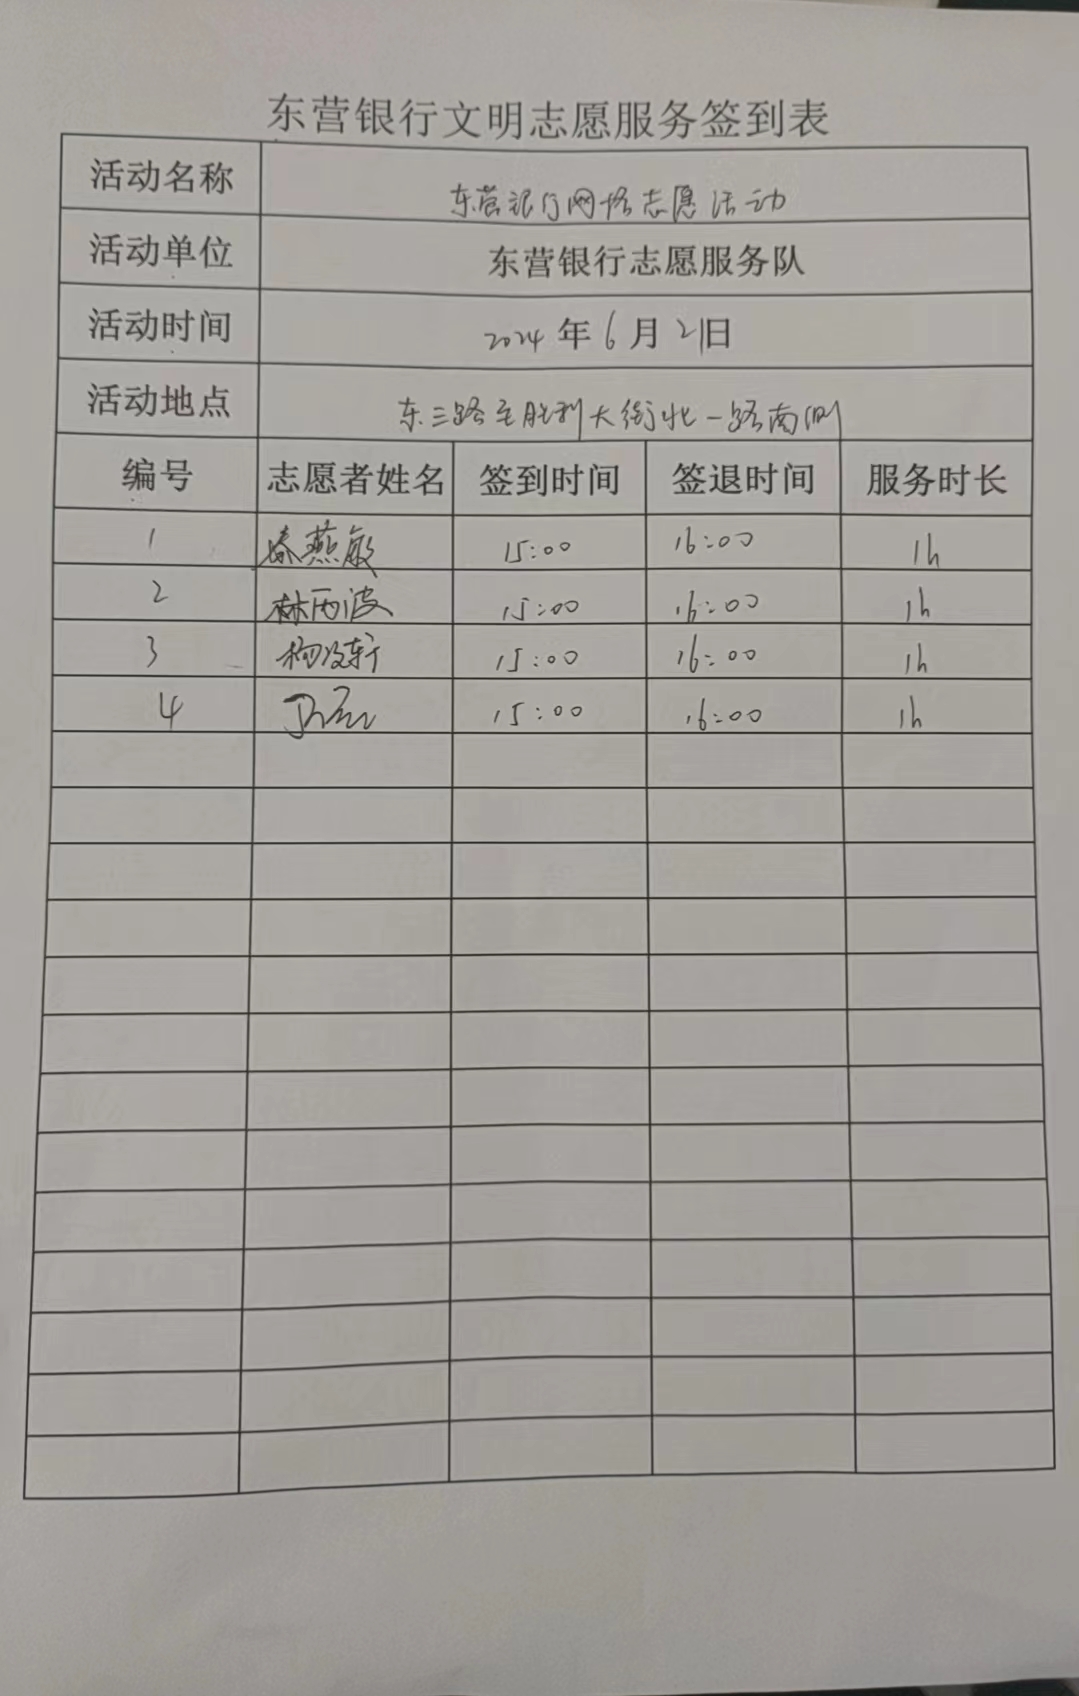 东营银行文明志愿服务签到表
活动名称 东营银行网格志愿活动
活动单位 东营银行志愿服务队
活动时间 2024年6月21日
活动地点 东三路至胜利大街北一路南侧
编号 志愿者姓名 签到时间 签退时间 服务时长
1 燕敏 15:00 16:00 1h
2 林丙波 15:00 16:00 1h
3 15:00 16:00 1h
4 15:00 16:00 1h